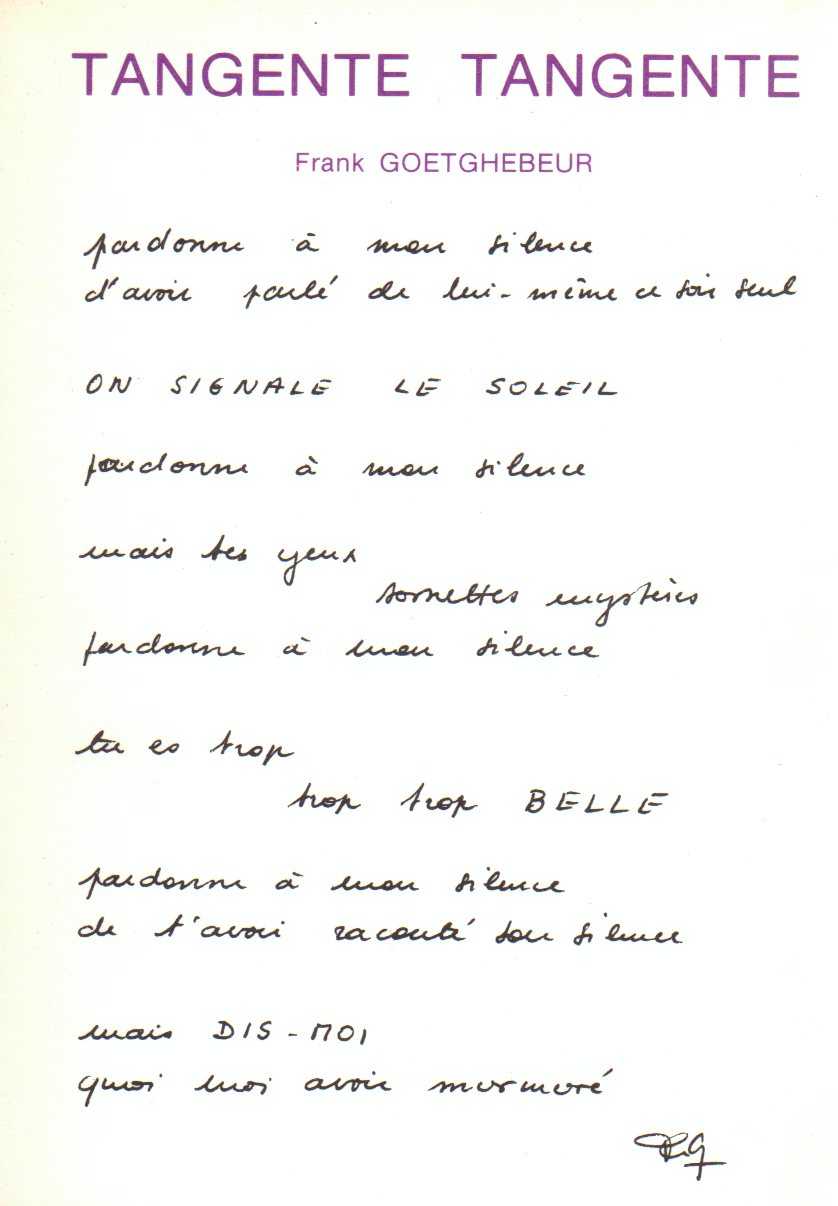 TANGENTE TANGENTE
Frank GOETGHEBEUR
pardonne à mon silence
d'avoir parlé de lui-même ce soir seul
ON SIGNALE LE SOLEIL
pardonne à mon silence
mais tes yeux
sornettes mystères
pardonne à mon silence
tu es trop
trop trop BELLE
pardonne à mon silence
de t'avoir raconté son silence
mais DIS-MOI
quoi moi avoir murmuré